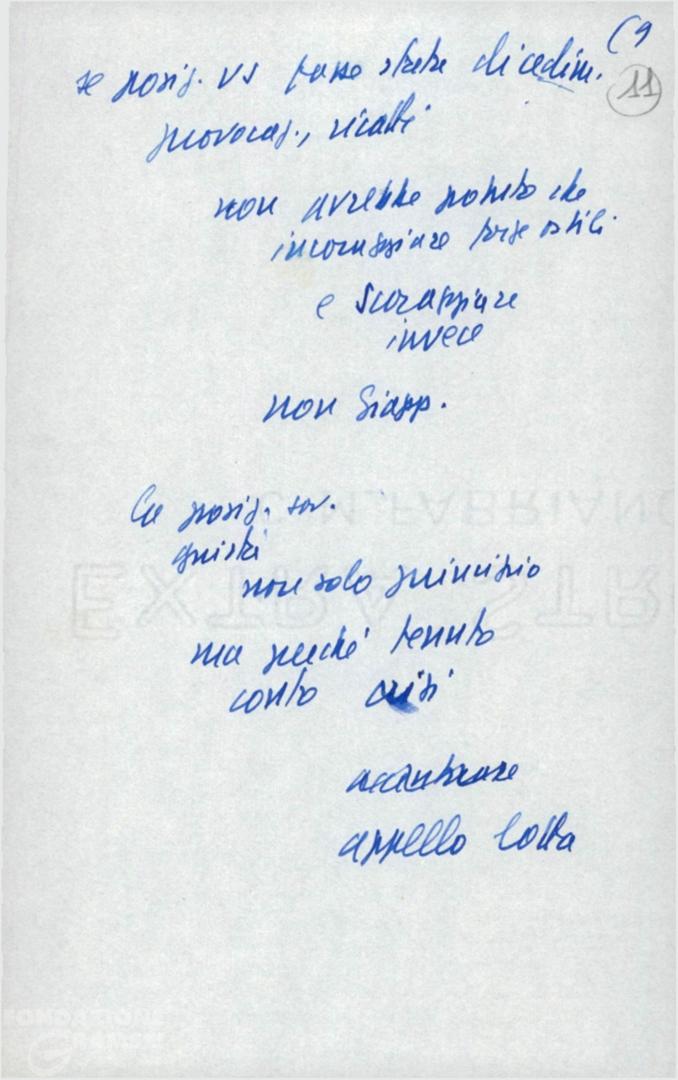 (9
11
se posiz. US fosse stata di cedim.
provocaz., ricatti
non avrebbe potuto che
incoraggiare forze ostili
e scoraggiare
invece
non Giapp.
La posiz. sov.
giusta
non solo principio
ma perché tenuto
conto crisi
accentuare
appello lotta
C.M. FABRIANO
EXTRA STR
FONDAZIONE
GRAMSCI